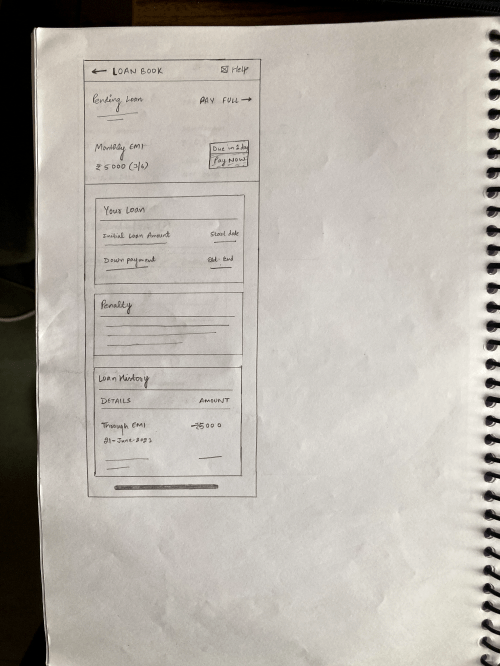 ← LOAN BOOK
Help
Pending Loan
PAY FULL →
Monthly EMI
Due in 1 day
₹5000 (3/6)
Pay Now
Your Loan
Initial Loan Amount
Start date
Down payment
Est. End
Penalty
Loan History
DETAILS
AMOUNT
Through EMI
-₹5000
21-June-2023